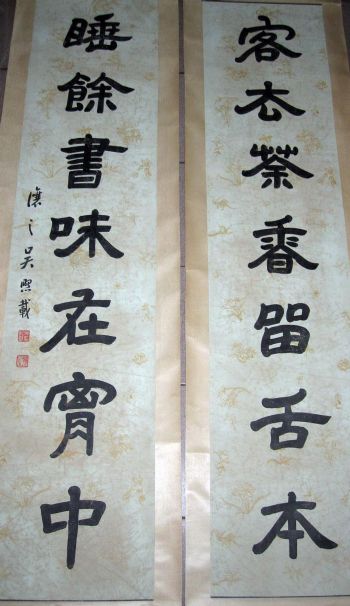 客去茶香留舌本
睡餘書味在胸中
讓之吳熙載